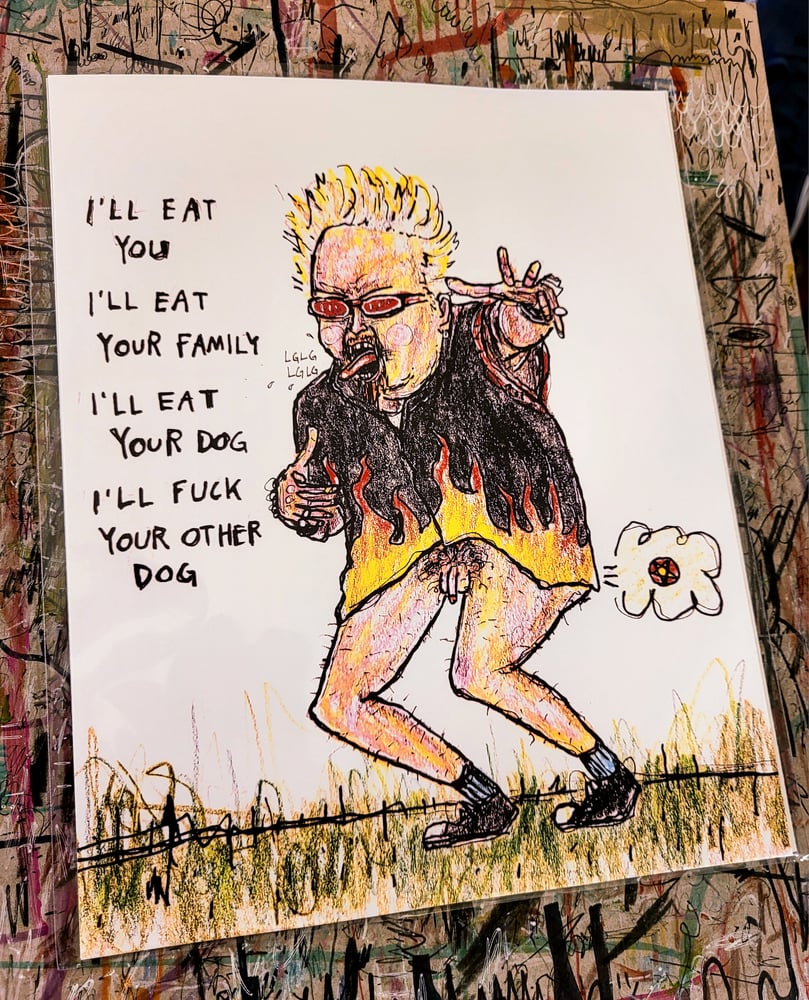 I'LL EAT
YOU
I'LL EAT
YOUR FAMILY
I'LL EAT
YOUR DOG
I'LL FUCK
YOUR OTHER
DOG
LGLG
LGLG